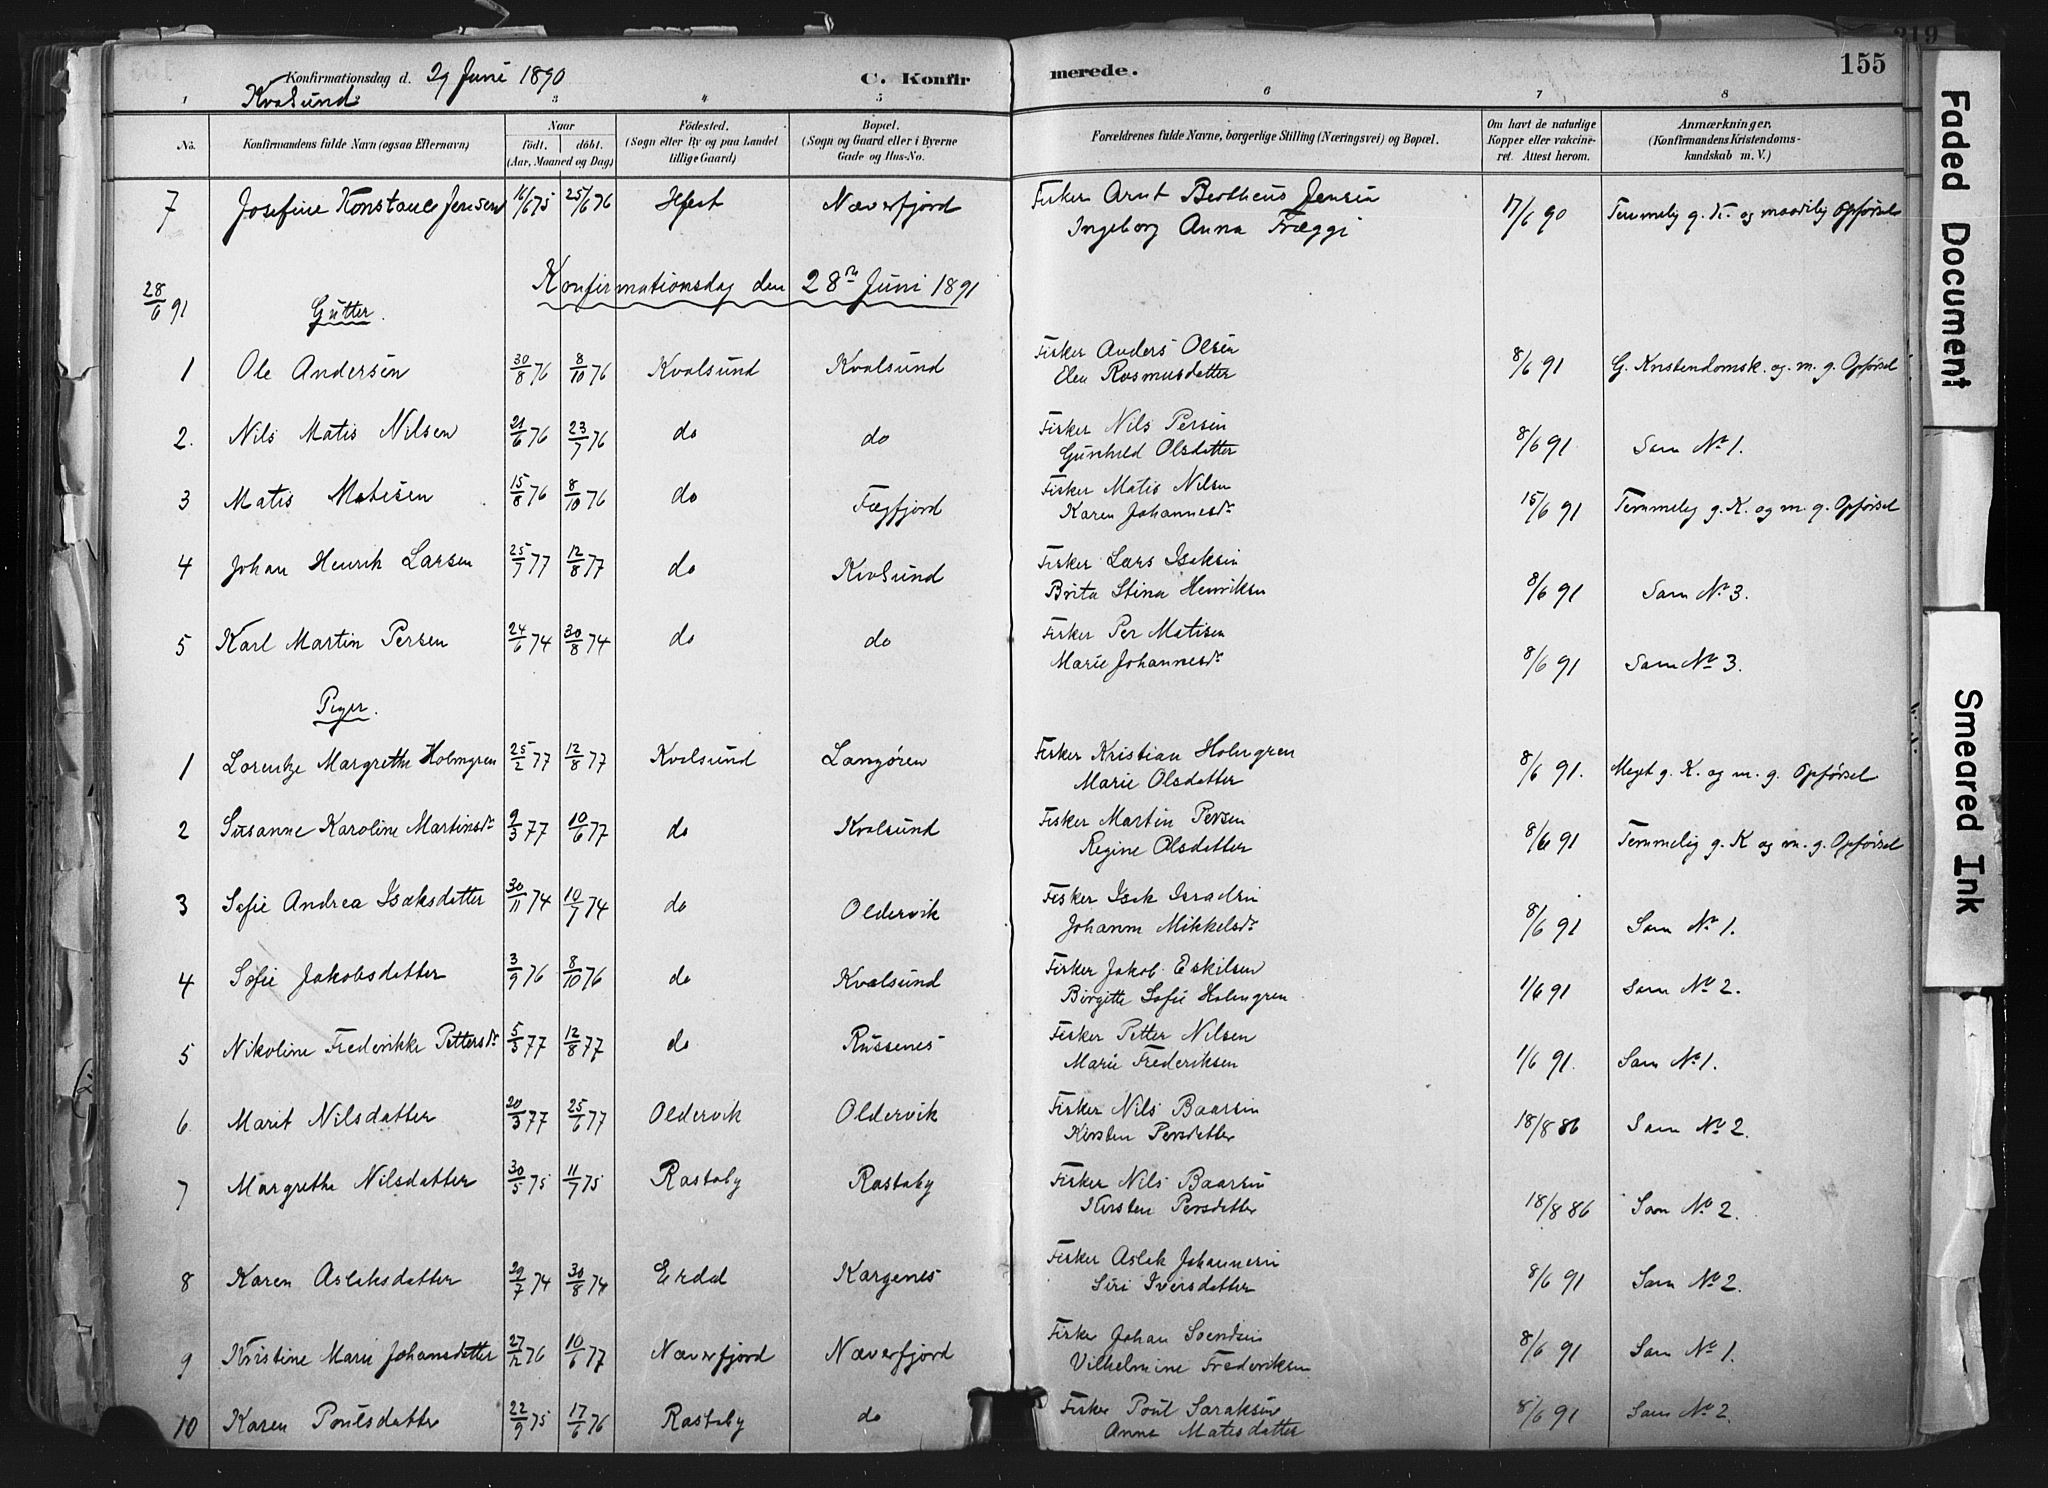 155
Konfirmationsdag d. 29 Juni 1890 C. Konfirmerede.
Kvalsund
1 3 4 5 6 7 8
No. Konfirmandens fulde Navn (ogsaa Efternavn) Naar født. døbt. (Aar, Maaned og Dag) Fødested. (Sogn eller By og paa Landet tillige Gaard) Bopæl. (Sogn og Gaard eller i Byerne Gade og Hus-No. Forældrenes fulde Navne, borgerlige Stilling (Næringsvei) og Bopæl. Om havt de naturlige Kopper eller vakcineret. Attest herom. Anmærkninger, (Konfirmandens Kristendomskundskab m. V.)
7 Josefine Konstance Jensen 16/6 75 25/6 76 Næverfjord Fisker Arnt Bertheus Jensen 17/6 90 Temmelig g. K. og maadelig Opførsel
Ingeborg Anna Fræggi
28/6 91 Konfirmationsdag den 28n Juni 1891
Gutter.
1 Ole Andersen 30/8 76 8/10 76 Kvalsund Kvalsund Fisker Anders Olsen 8/6 91 G. Kristendomsk. og. m. g. Opførsel
Elen Rasmusdatter
2. Nils Matis Nilsen 21/6 76 23/7 76 do do Fisker Nils Persen 8/6 91. Som No 1.
Gunhild Olsdatter
3 Matis Matisen 15/8 76 8/10 76 do Fægfjord Fisker Matis Nilsen 15/6 91 Temmelig g. K. og m. g. Opførsel
Karen Johannesdr
4 Johan Henrik Larsen 25/7 77 12/8 77 do Kvalsund Fisker Lars Isaksen 8/6 91 Som No 3.
Brita Stina Henriksen
5 Karl Martin Persen 24/6 74 30/8 74 do do Fisker Per Matisen 8/6 91 Som No 3.
Marie Johannesdr
Piger.
1 Lorentze Margrethe Holmgren 25/2 77 12/8 77 Kvalsund Langøren Fisker Kristian Holmgren 8/6 91. Meget g. K. og m. g. Opførsel
Marie Olsdatter
2 Susanne Karoline Martinsdr 9/3 77 10/6 77 do Kvalsund Fisker Martin Persen 8/6 91 Temmelig g. K og m. g. Opførsel
Regine Olsdatter
3 Sofie Andrea Isaksdatter 30/11 74 10/7 74 do Oldervik Fisker Isak Israelsen 8/6 91 Som No 1.
Johanne Mikkelsdr
4 Sofie Jakobsdatter 3/9 76 8/10 76 do Kvalsund Fisker Jakob Eskilsen 1/6 91 Som No 2.
Birgitte Sofie Holmgren
5 Nikoline Frederikke Pettersdr 5/3 77 12/8 77 do Russenes Fisker Petter Nilsen 1/6 91. Som No 1.
Marie Frederiksen
6. Marit Nilsdatter 20/3 77 25/6 77 Oldervik Oldervik Fisker Nils Baarsen 18/8 86 Som No 2.
Kirsten Persdatter
7 Margrethe Nilsdatter 30/5 75 11/7 75 Rastaby Rastaby Fisker Nils Baarsen 18/8 86 Som No 2.
Kirsten Persdatter
8 Karen Aslaksdatter 29/7 74 30/8 74 Erdal Kargenes Fisker Aslak Johannesen 8/6 91 Som No 2.
Siri Iversdatter
9 Kristine Marie Johansdatter 27/12 76 10/6 77 Næverfjord Næverfjord Fisker Johan Svendsen 8/6 91 Som No 1.
Vilhelmine Frederiksen
10 Karen Poulsdatter 22/9 75 17/6 76 Rastaby do Fisker Poul Saraksen 8/6 91 Som No 2.
Anne Matisdatter
Faded Document
Smeared Ink